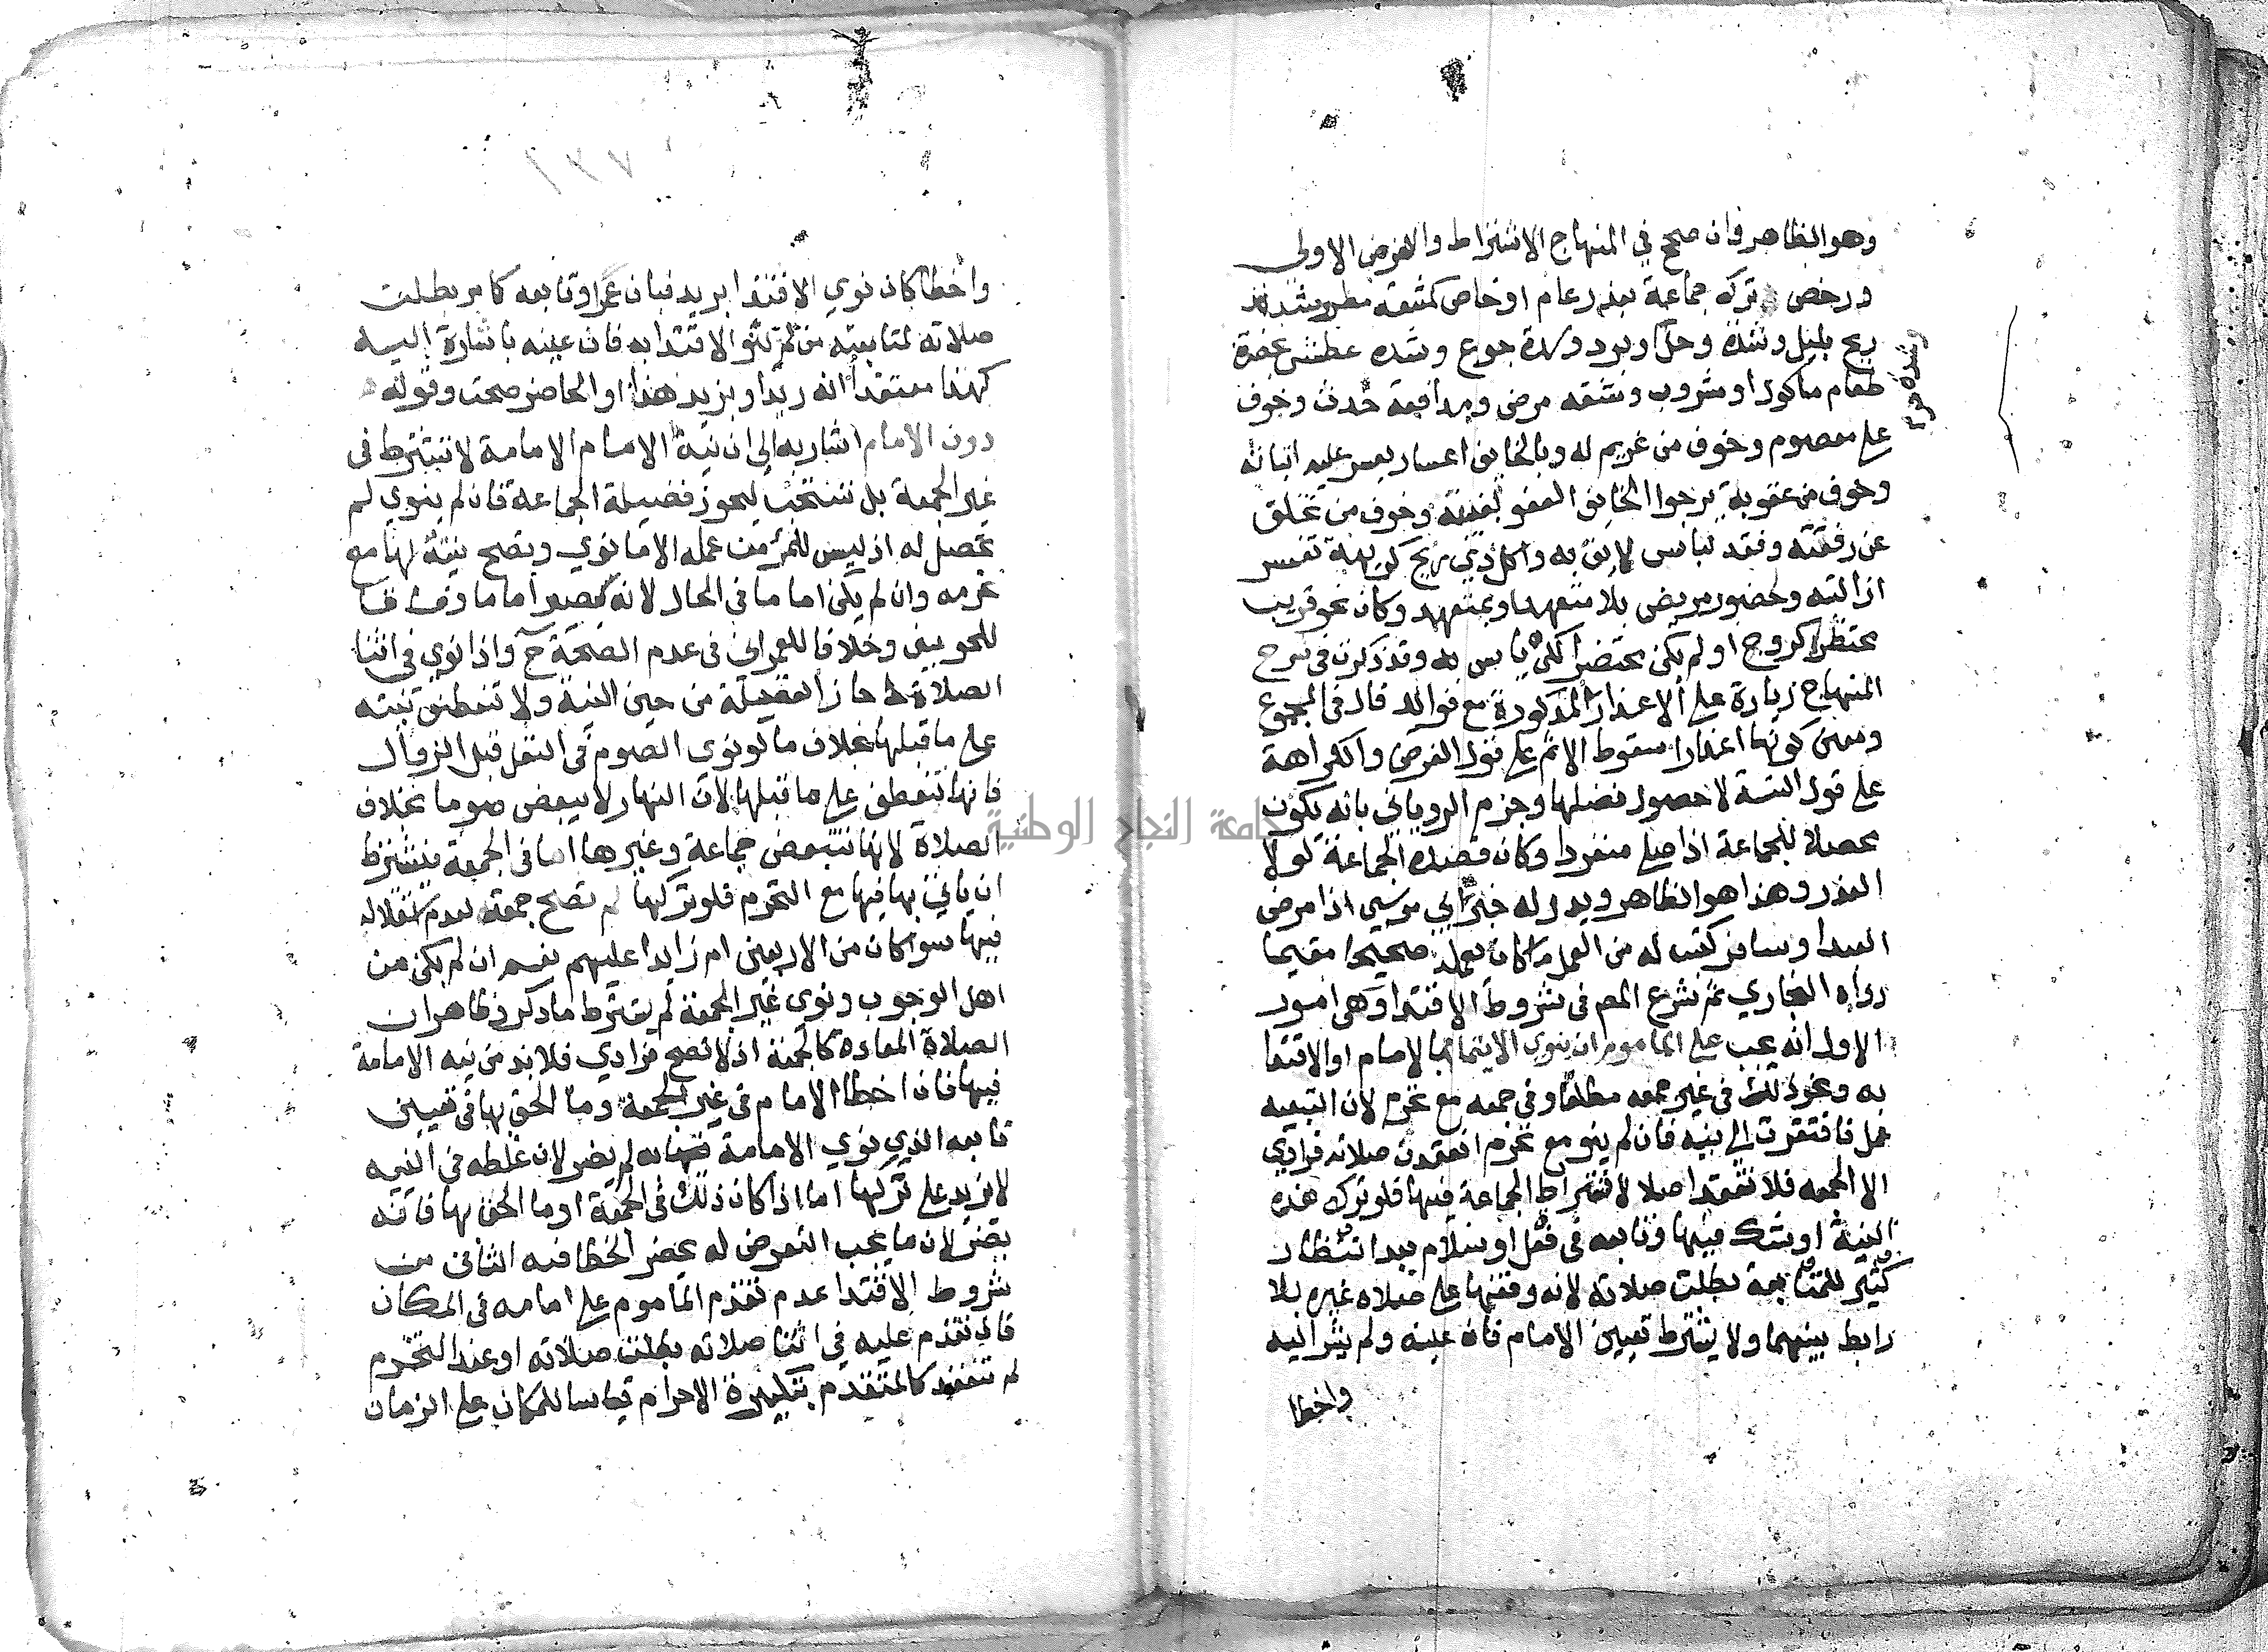 وهو الظاهر وان صحح في المنهاج الاشتراط والغرض الاولى
ورخص تركه جماعة بعذر عام او خاص كمشقه مطر وشدة
ريح بليل وشدة وحل وبرد وشدة جوع وشده عطش بحضرة
وشدة حر
طعام ماكول او مشروب ومشقه مرض ومدافعة حدث وخوف
على معصوم وخوف من غريم له وبالخايف اعسار يعسر عليه اثباته
وخوف من عقوبة يرجوا الخايف العفو بغيبته وخوف من تخلف
عن رفقته وفقد لباس لايق به واكل ذي ريح كريهة تعسر
ازالته وحضور مريض بلا متعهد او بمتعهد وكان نحو قريب
محتضرا كزوج او لم يكن محتضرا لكن يانس به وقد ذكرت في شرح
المنهاج زيادة على الاعذار المذكورة مع فوائد قال في المجموع
ومعنى كونها اعذارا سقوط الاثم على قول الفرض والكراهة
على قول السنة لا حصول فضلها وجزم الروياني بانه يكون
محصلا للجماعة اذا صلى منفردا وكان قصده الجماعة لولا
العذر وهذا هو الظاهر ويدل له خبر ابي موسى اذا مرض
العبد او سافر كتب له من العمل ما كان يعمله صحيحا مقيما
رواه البخاري ثم شرع المص في شروط الاقتدا وهي امور
الاول انه يجب على الماموم ان ينوي الايتمام بالامام او الاقتدا
به ونحو ذلك في غير جمعه مطلقا وفي جمعه مع تحرم لان التبعيه
عمل فافتقرت الى نيه فان لم ينو مع تحرم انعقدت صلاته فرادي
الا الجمعه فلا تنعقد اصلا لاشتراط الجماعة فيها فلو ترك هذه
النية او شك فيها وتابعه في فعل او سلام بعد انتظار
كثير للمتابعة بطلت صلاته لانه وقفها على صلاه غيره بلا
رابط بينهما ولا يشترط تعيين الامام فان عينه ولم يشر اليه
واخطا
١٣٧
واخطا كان نوي الاقتدا بزيد فبان عمرا وتابعه كما مر بطلت
صلاته لمتابعته من لم ينو الاقتدا به فان عينه باشارة اليه
كهذا معتقدا انه زيد او بزيد هذا او الحاضر صحت وقوله
دون الامام اشار به الى ان نية الامام الامامة لا تشترط في
غير الجمعة بل تستحب ليحوز فضيلة الجماعة فان لم ينوي لم
تحصل له اذ ليس للمرء من عمله الا ما نوي وتصح نيته لها مع
تحرمه وان لم يكن اماما في الحال لانه سيصير اماما وفاقا
للجويني وخلافا للعمراني في عدم الصحة ح واذا نوي في اثنا
الصلاة حاز الفضيلة من حين النية ولا تنعطف نيته
على ما قبلها بخلاف ما لو نوى الصوم في النفل قبل الزوال
فانها تنعطف على ما قبلها لان النهار لا يتبعض صوما بخلاف
الصلاة لانها تتبعض جماعة وغيرها اما في الجمعة فيشترط
ان ياتي بها فيها مع التحرم فلو تركها لم تصح جمعته لعدم استقلاله
فيها سوا كان من الاربعين ام زايدا عليهم نعم ان لم يكن من
اهل الوجوب ونوى غير الجمعة لم يشترط ما ذكر وظاهر ان
الصلاة المعادة كالجمعة اذ لا تصح فرادي فلابد من نيه الامامة
فيها فان اخطا الامام في غير الجمعة وما الحق بها في تعيين
تابعه الذي نوي الامامة به لم يضر لان غلطه في النيه
لا يزيد على تركها اما اذا كان ذلك في الجمعة او ما الحق بها فانه
يضر لان ما يجب التعرض له يضر الخطا فيه الثاني من
شروط الاقتدا عدم تقدم الماموم على امامه في المكان
فان تقدم عليه في اثنا صلاته بطلت صلاته او عند التحرم
لم تنعقد كالمتقدم بتكبيرة الاحرام قياسا للمكان على الزمان
جامعة النجاح الوطنية